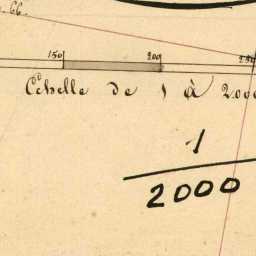 66.
150 200 250
Echelle de 1 à 2000
1
2000